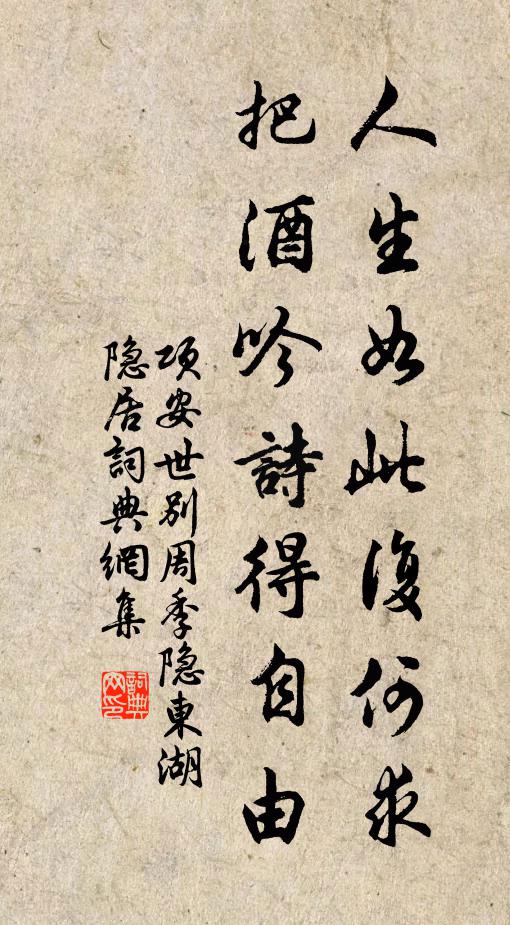 人生如此復何求
把酒吟詩得自由
項安世別周季隐東湖
隐居詞典網集
詞典網印